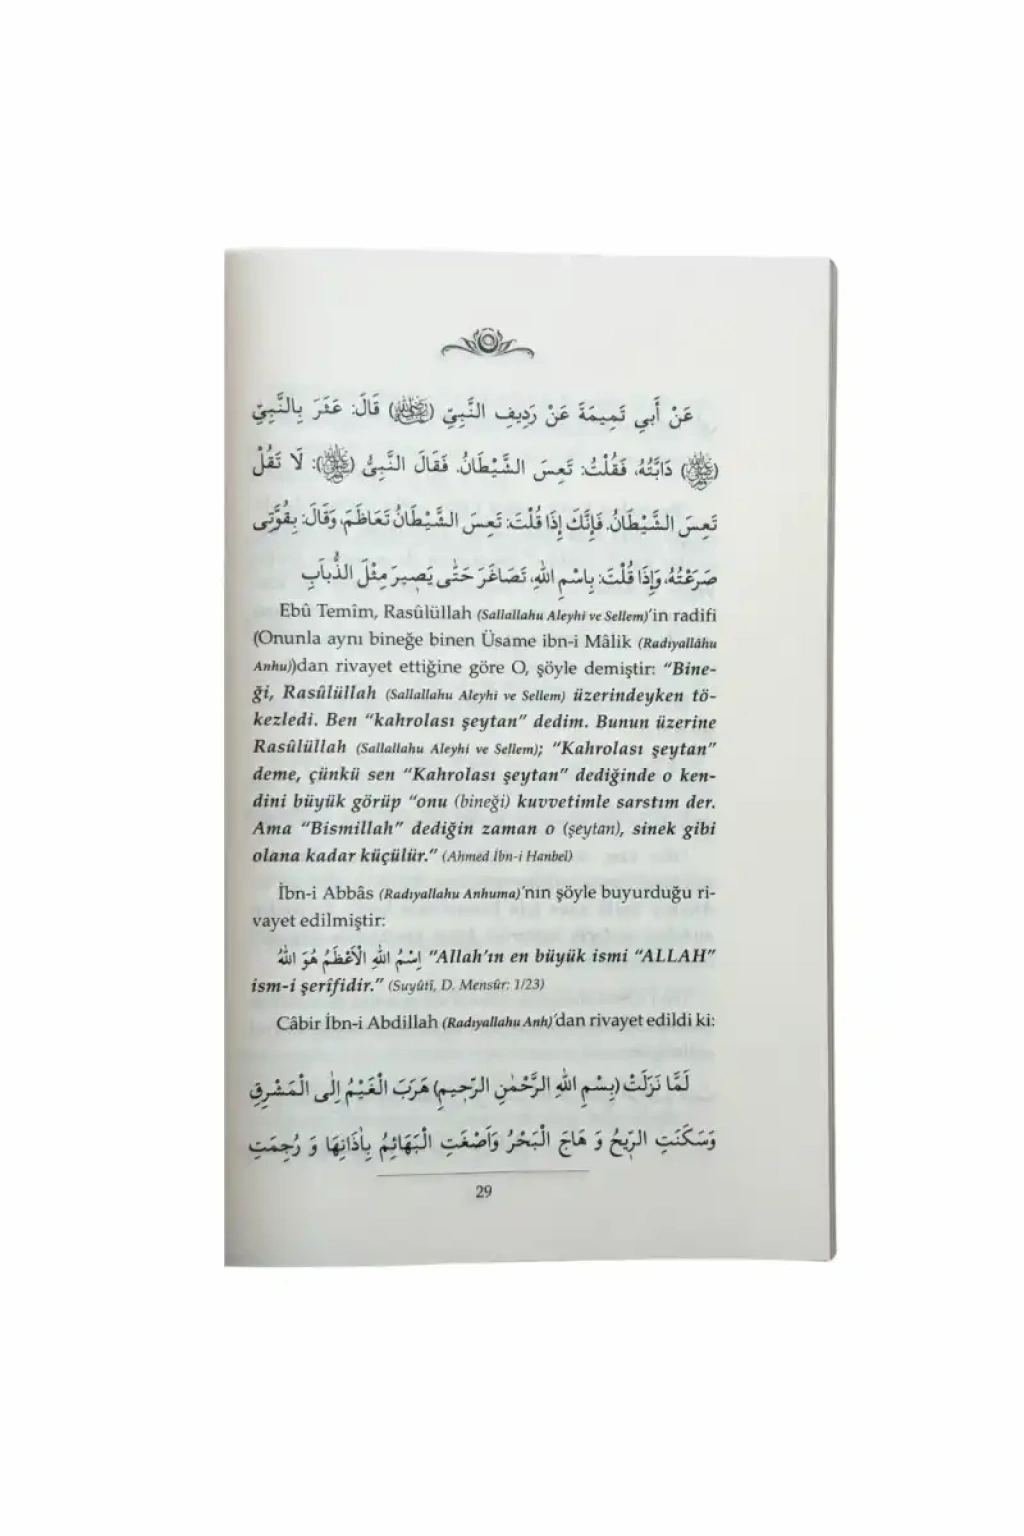 عَنْ أَبِي تَمِيمَةَ عَنْ رَدِيفِ النَّبِيِّ (ﷺ) قَالَ: عَثَرَ بِالنَّبِيِّ
(ﷺ) دَابَّتُهُ، فَقُلْتُ: تَعِسَ الشَّيْطَانُ. فَقَالَ النَّبِيُّ (ﷺ): لَا تَقُلْ
تَعِسَ الشَّيْطَانُ. فَإِنَّكَ إِذَا قُلْتَ: تَعِسَ الشَّيْطَانُ تَعَاظَمَ، وَقَالَ: بِقُوَّتِى
صَرَعْتُهُ، وَإِذَا قُلْتَ: بِاسْمِ اللهِ، تَصَاغَرَ حَتَّى يَصِيرَ مِثْلَ الذُّبَابِ
Ebû Temîm, Rasûlüllah (Sallallahu Aleyhi ve Sellem)'in radifi
(Onunla aynı bineğe binen Üsame ibn-i Mâlik (Radıyallâhu
Anhu))dan rivayet ettiğine göre O, şöyle demiştir: "Bine-
ği, Rasûlüllah (Sallallahu Aleyhi ve Sellem) üzerindeyken tö-
kezledi. Ben "kahrolası şeytan" dedim. Bunun üzerine
Rasûlüllah (Sallallahu Aleyhi ve Sellem); "Kahrolası şeytan"
deme, çünkü sen "Kahrolası şeytan" dediğinde o ken-
dini büyük görüp "onu (bineği) kuvvetimle sarstım der.
Ama "Bismillah" dediğin zaman o (şeytan), sinek gibi
olana kadar küçülür." (Ahmed İbn-i Hanbel)
İbn-i Abbâs (Radıyallahu Anhuma)'nın şöyle buyurduğu ri-
vayet edilmiştir:
اِسْمُ اللهِ الْاَعْظَمُ هُوَ اللهُ "Allah'ın en büyük ismi "ALLAH"
ism-i şerîfidir." (Suyûtî, D. Mensûr: 1/23)
Câbir İbn-i Abdillah (Radıyallahu Anh)'dan rivayet edildi ki:
لَمَّا نَزَلَتْ (بِسْمِ اللهِ الرَّحْمٰنِ الرَّحِيمِ) هَرَبَ الْغَيْمُ اِلَى الْمَشْرِقِ
وَسَكَنَتِ الرِّيحُ وَ هَاجَ الْبَحْرُ وَاَصْغَتِ الْبَهَائِمُ بِاٰذَانِهَا وَ رُجِمَتِ
29